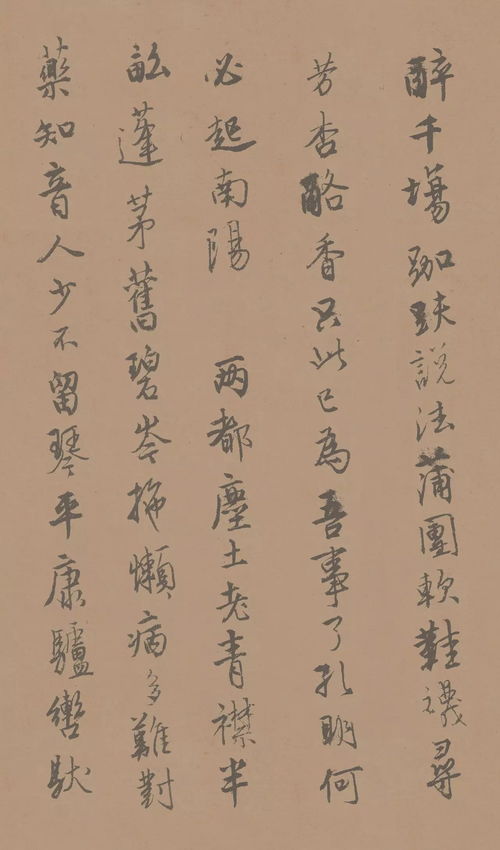 醉千場跏趺說法蒲團軟鞋襪尋
芳杏酪香只此已為吾事了孔明何
必起南陽　两都塵土老青襟半
畝蓬茅舊碧岑拚懶病多難對
藥知音人少不留琴平康驢轡馱